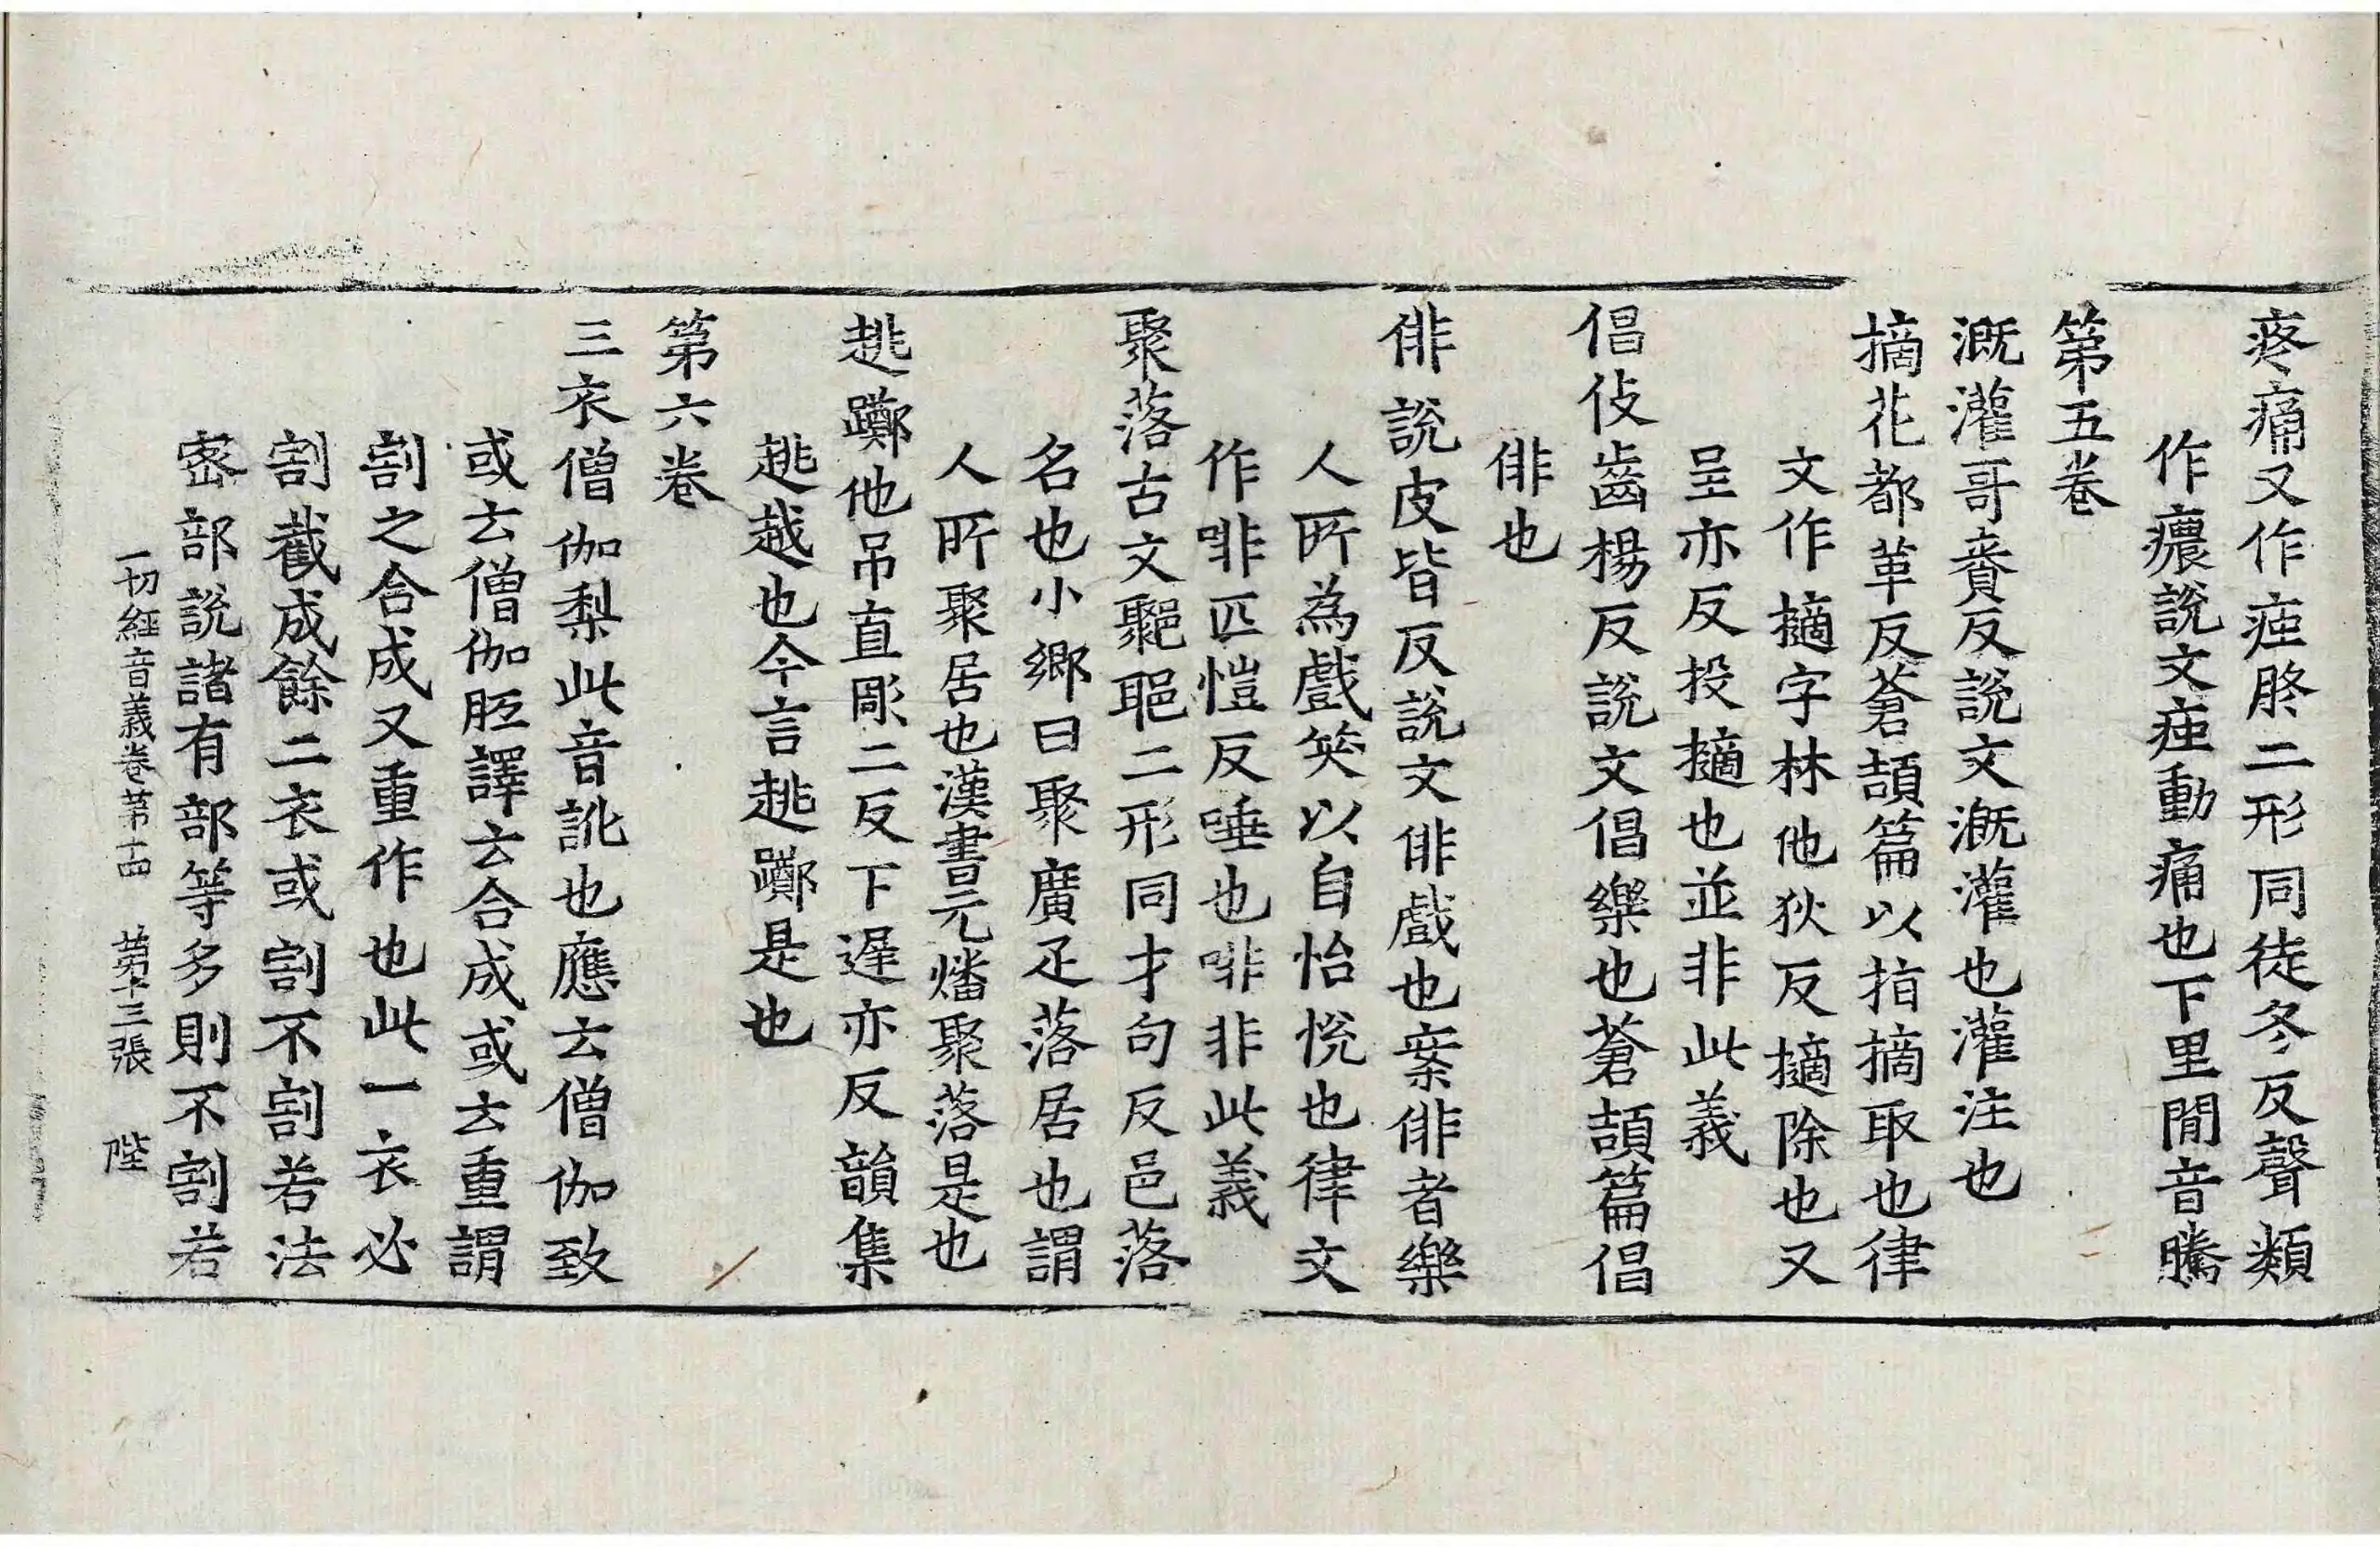 疼痛又作痋胮二形同徒冬反聲類
作癑說文痋動痛也下里閒音騰
第五卷
溉灌哥賚反說文溉灌也灌注也
摘花都革反蒼頡篇以指摘取也律
文作擿字林他狄反擿除也又
呈亦反投擿也並非此義
倡伎齒楊反說文倡樂也蒼頡篇倡
俳也
俳說皮皆反說文俳戲也案俳者樂
人所為戲笑以自怡悅也律文
作啡匹愷反唾也啡非此義
聚落古文䣝郰二形同才句反邑落
名也小鄉曰聚廣疋落居也謂
人所聚居也漢書元燔聚落是也
趒躑他吊直彫二反下遲亦反韻集
趒越也今言趒躑是也
第六卷
三衣僧伽梨此音訛也應云僧伽致
或云僧伽胝譯云合成或云重謂
割之合成又重作也此一衣必
割截成餘二衣或割不割若法
密部說諸有部等多則不割若
一切經音義卷第十四 第十三張 陛